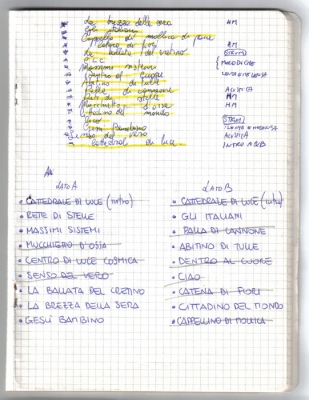 La brezza della sera HM
Gli italiani
Cappellino di mollica di pane
Catena di fiori HM
La ballata del cretino
Massimi sistemi
Dentro al cuore
Abitino di tulle ACUSTICA
Palla di cannone HM
Rete di stelle HM
Mucchietto d'ossa HM
Cittadino del mondo
Ciao
Gesù Bambino
Senso del vero ACUSTICA
Cattedrale di luce INTRO A&B
LATO A
• CATTEDRALE DI LUCE (intro)
• RETE DI STELLE
• MASSIMI SISTEMI
• MUCCHIETTO D'OSSA
• CENTRO DI LUCE COSMICA
• SENSO DEL VERO
• LA BALLATA DEL CRETINO
• LA BREZZA DELLA SERA
• GESÙ BAMBINO
LATO B
• CATTEDRALE DI LUCE (intro)
• GLI ITALIANI
• PALLA DI CANNONE
• ABITINO DI TULLE
• DENTRO AL CUORE
• CIAO
• CATENA DI FIORI
• CITTADINO DEL MONDO
• CAPPELLINO DI MOLLICA